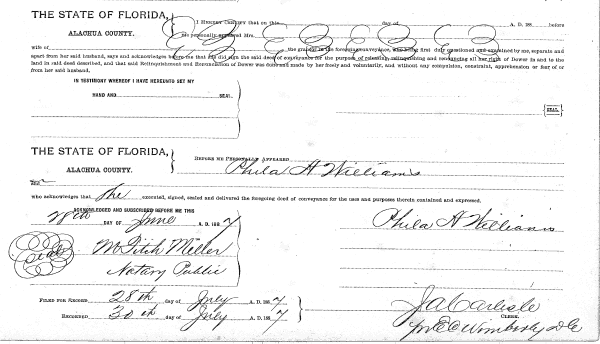 THE STATE OF FLORIDA,
ALACHUA COUNTY.
I HEREBY CERTIFY that on this day of A. D. 188 before
me personally appeared Mrs.
wife of the grantor in the foregoing conveyance, who being first duly questioned and examined by me, separate and
apart from her said husband, says and acknowledges before me that she did sign the said deed of conveyance for the purpose of releasing, relinquishing and renouncing all her right of Dower in and to the
land in said deed described, and that said Relinquishment and Renunciation of Dower was done and made by her freely and voluntarily, and without any compulsion, constraint, apprehension or fear of or
from her said husband,
IN TESTIMONY WHEREOF I HAVE HEREUNTO SET MY
HAND AND SEAL.
SEAL
THE STATE OF FLORIDA,
ALACHUA COUNTY.
BEFORE ME PERSONALLY APPEARED
Phila A Williams
who acknowledges that she executed, signed, sealed and delivered the foregoing deed of conveyance for the uses and purposes therein contained and expressed.
ACKNOWLEDGED AND SUBSCRIBED BEFORE ME THIS
28th DAY OF June A. D. 1887
Phila A Williams
Seal
M Fitch Miller
Notary Public
FILED FOR RECORD 28th day of July A. D. 1887
RECORDED 30th day of July A. D. 1887
J A Carlisle
CLERK.
pr E C Wimberly D C